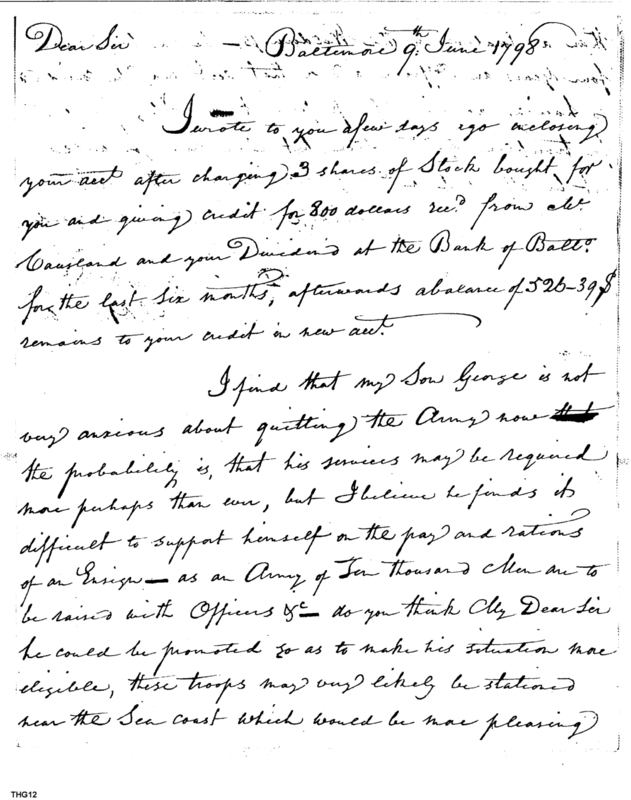 Dear Sir — Baltimore 9th June 1798
I wrote to you a few days ago inclosing
your acct after charging 3 shares of Stock bought for
you and giving credit for 800 dollars recd from Mr
Causland and your Dividend at the Bank of Balto.
for the last six months, afterwards a balance of 526-39 $
remains to your credit in new acct.
I find that my Son George is not
very anxious about quitting the Army now
the probability is, that his services may be required
more perhaps than ever, but I believe he finds it
difficult to support himself on the pay and rations
of an Ensign — as an Army of Ten thousand Men are to
be raised with Officers &c — do you think My Dear Sir
he could be promoted so as to make his situation more
eligible, these troops may very likely be stationed
near the Sea coast which would be more pleasing
THG12